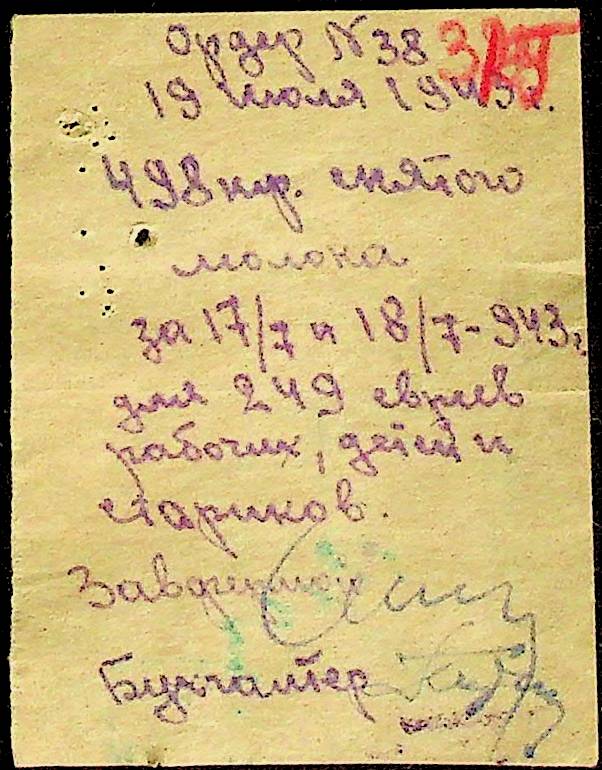 Ордер N 38
19 июля 1943 г.
498 кгр. снятого
молока
за 17/7 и 18/7 - 943 г.
для 249 евреев
рабочих, детей и
стариков.
Бухгалтер